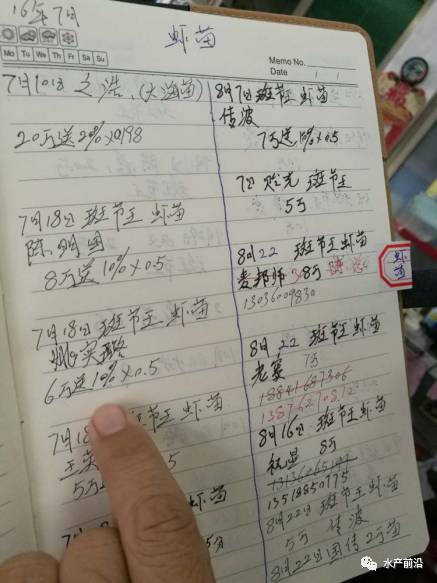 16年7月
虾苗
Memo No.
Date / /
Mo Tu We Th Fr Sa Su
7月10日 之浩 (大海苗)
20万送20%×0.98
7月18日 斑节王 虾苗
陈明国
8万送10%×0.5
7月18日 斑节王 虾苗
6万送10%×0.5
7月18 斑节王 虾苗
王
5万 5
虾苗
8月7日 斑节王 虾苗
佳波
7万送10%×0.5
7日 贻光 斑节王
5万
8月22 斑节王 虾苗
麦邦师 8万
13036009830
8月22 斑节王 虾苗
老蔡 7万
8月16日 斑节王 虾苗
8万
13518850775
8月22日 斑节王 虾苗
5万 佳波
8月22日 国传 2万苗
虾苗
水产前沿